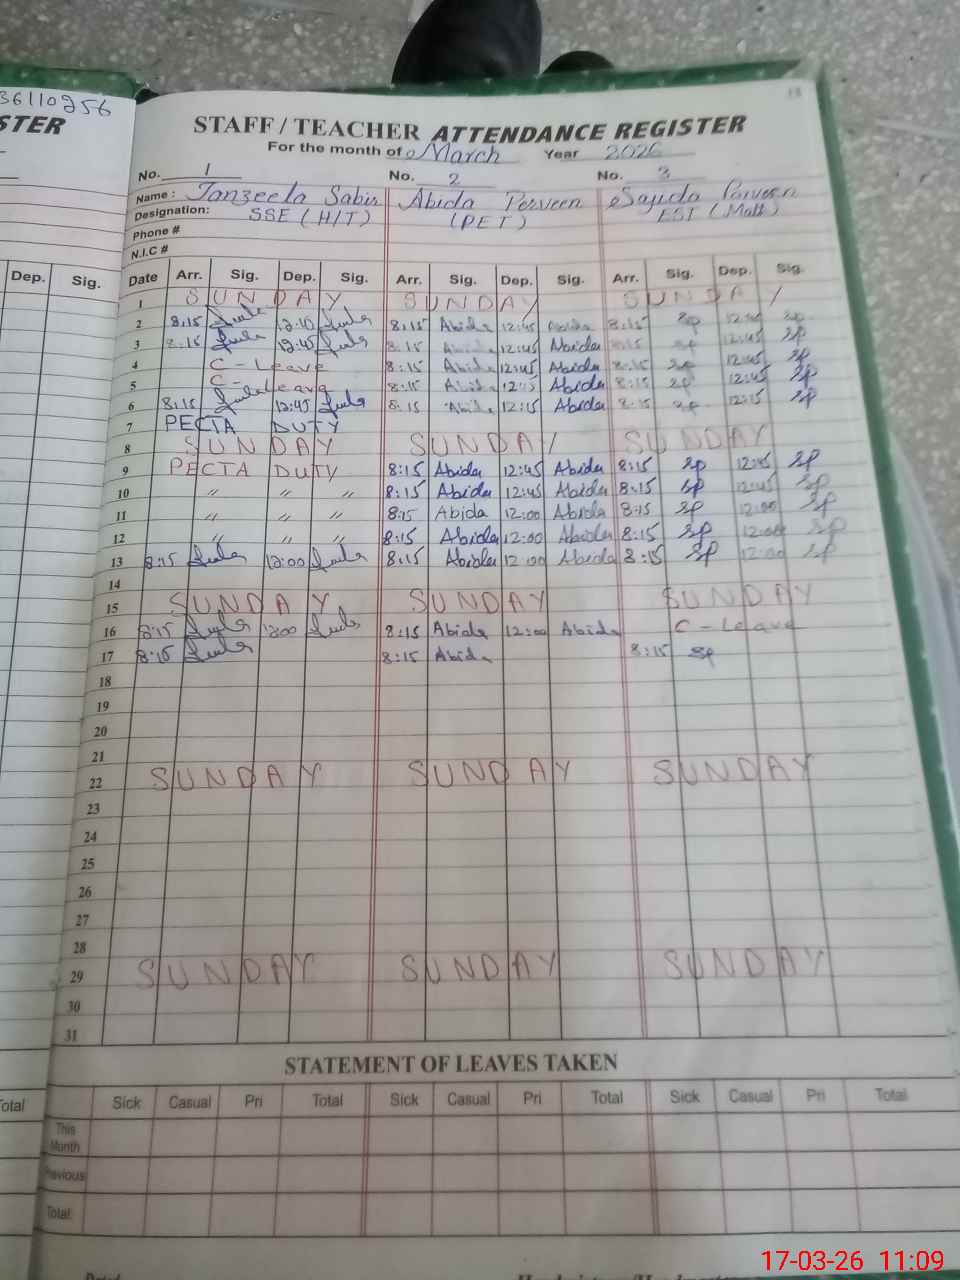 36110256
STER
STAFF / TEACHER ATTENDANCE REGISTER
For the month of March Year 2026
No. 1 No. 2 No. 3
Name: Tanzeela Sabir Abida Perveen Sajida Parveen
Designation: SSE (H/T) (PET) EST (Math)
Phone #
N.I.C #
Dep. Sig. Date Arr. Sig. Dep. Sig. Arr. Sig. Dep. Sig. Arr. Sig. Dep. Sig.
1 SUNDAY SUNDAY SUNDAY
2 8:15 12:10 8:15 Abida 12:45 Abida 8:15 sp sp
3 8:15 12:45 8:15 Abida 12:45 Abida 8:15 sp 12:45 sp
4 C-Leave 8:15 Abida 12:45 Abida 8:15 sp 12:45 sp
5 C-Leave 8:15 Abida Abida 8:15 sp 12:45 sp
6 8:15 12:45 8:15 Abida 12:15 Abida 8:15 sp 12:15 sp
7 PECTA DUTY
8 SUNDAY SUNDAY SUNDAY
9 PECTA DUTY 8:15 Abida 12:45 Abida 8:15 sp 12:45 sp
10 " " " 8:15 Abida 12:45 Abida 8:15 sp 12:45 sp
11 " " " 8:15 Abida 12:00 Abida 8:15 sp 12:00 sp
12 " " " 8:15 Abida 12:00 Abida 8:15 sp 12:00 sp
13 8:15 12:00 8:15 Abida 12:00 Abida 8:15 sp 12:00 sp
14
15 SUNDAY SUNDAY SUNDAY
16 8:15 12:00 8:15 Abida 12:00 Abida C-Leave
17 8:15 8:15 Abida 8:15 sp
18
19
20
21
22 SUNDAY SUNDAY SUNDAY
23
24
25
26
27
28
29 SUNDAY SUNDAY SUNDAY
30
31
STATEMENT OF LEAVES TAKEN
Total Sick Casual Pri Total Sick Casual Pri Total Sick Casual Pri Total
This Month
Previous
Total:
17-03-26 11:09